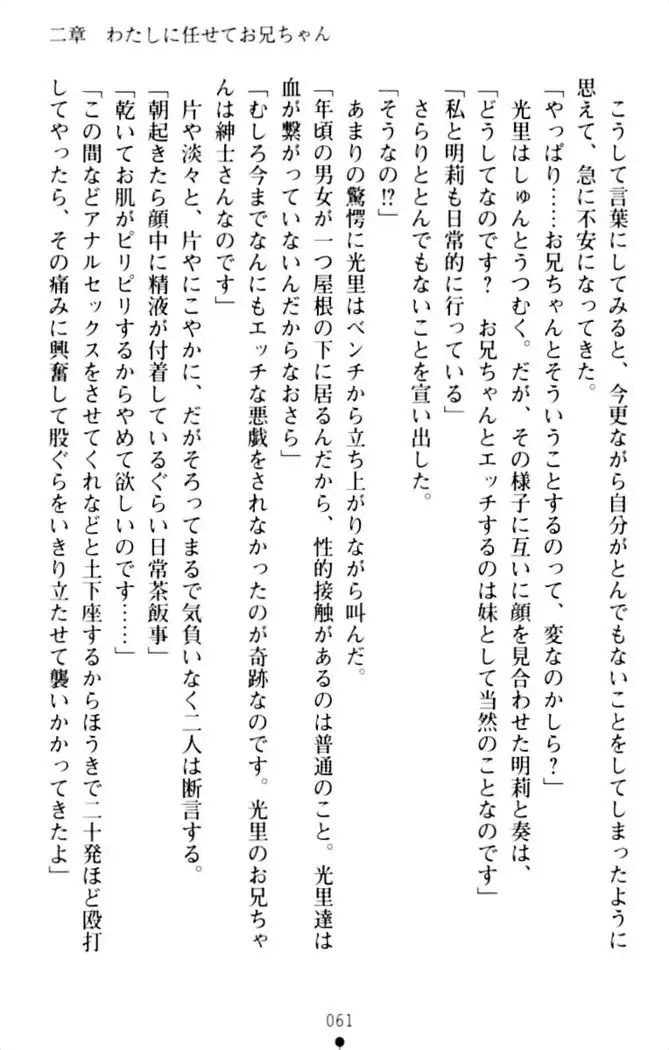 二章 わたしに任せてお兄ちゃん
こうして言葉にしてみると、今更ながら自分がとんでもないことをしてしまったように
思えて、急に不安になってきた。
「やっぱり……お兄ちゃんとそういうことするのって、変なのかしら?」
光里はしゅんとうつむく。だが、その様子に互いに顔を見合わせた明莉と奏は、
「どうしてなのです? お兄ちゃんとエッチするのは妹として当然のことなのです」
「私と明莉も日常的に行っている」
さらりととんでもないことを宣い出した。
「そうなの!?」
あまりの驚愕に光里はベンチから立ち上がりながら叫んだ。
「年頃の男女が一つ屋根の下に居るんだから、性的接触があるのは普通のこと。光里達は
血が繋がっていないんだからなおさら」
「むしろ今までなんにもエッチな悪戯をされなかったのが奇跡なのです。光里のお兄ちゃ
んは紳士さんなのです」
片や淡々と、片やにこやかに、だがそろってまるで気負いなく二人は断言する。
「朝起きたら顔中に精液が付着しているぐらい日常茶飯事」
「乾いてお肌がピリピリするからやめて欲しいのです……」
「この間などアナルセックスをさせてくれなどと土下座するからほうきで二十発ほど殴打
してやったら、その痛みに興奮して股ぐらをいきり立たせて襲いかかってきたよ」
061